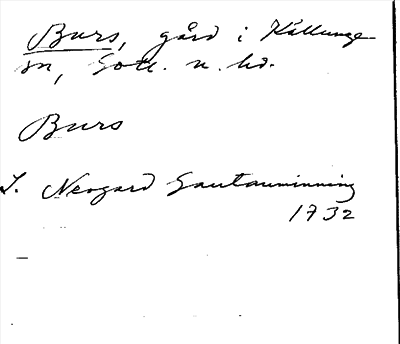 Burs, gård i Källunge
sn, Gotl. n. hd.
Burs
L. Neogard Gautauminning
1732